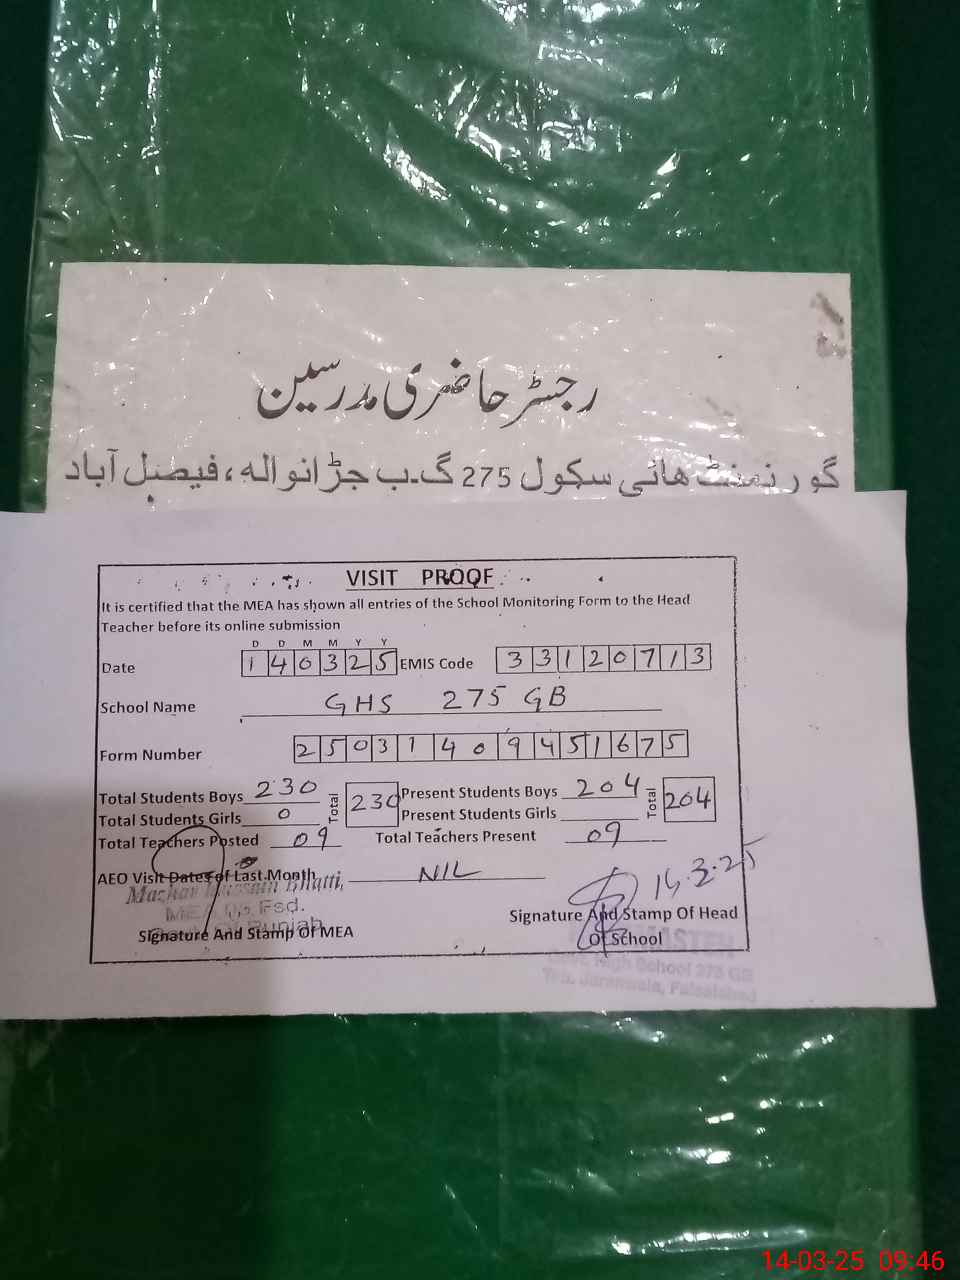 رجسٹر حاضری مدرسین
گورنمنٹ ھائی سکول 275 گ۔ب جڑانوالہ، فیصل آباد
VISIT PROOF
It is certified that the MEA has shown all entries of the School Monitoring Form to the Head
Teacher before its online submission
D D M M Y Y
Date 140325 EMIS Code 33120713
School Name GHS 275 GB
Form Number 25031409451675
Total Students Boys 230 Total 230 Present Students Boys 204 Total 204
Total Students Girls 0 Present Students Girls
Total Teachers Posted 09 Total Teachers Present 09
AEO Visit Dates of Last Month NIL
14.3.25
Mazhar Hussain Bhatti,
MEA Fsd.
Signature And Stamp Of MEA
Punjab
Signature And Stamp Of Head
Of School
High School 275 GB
Teh. Jaranwala, Faisalabad
14-03-25 09:46